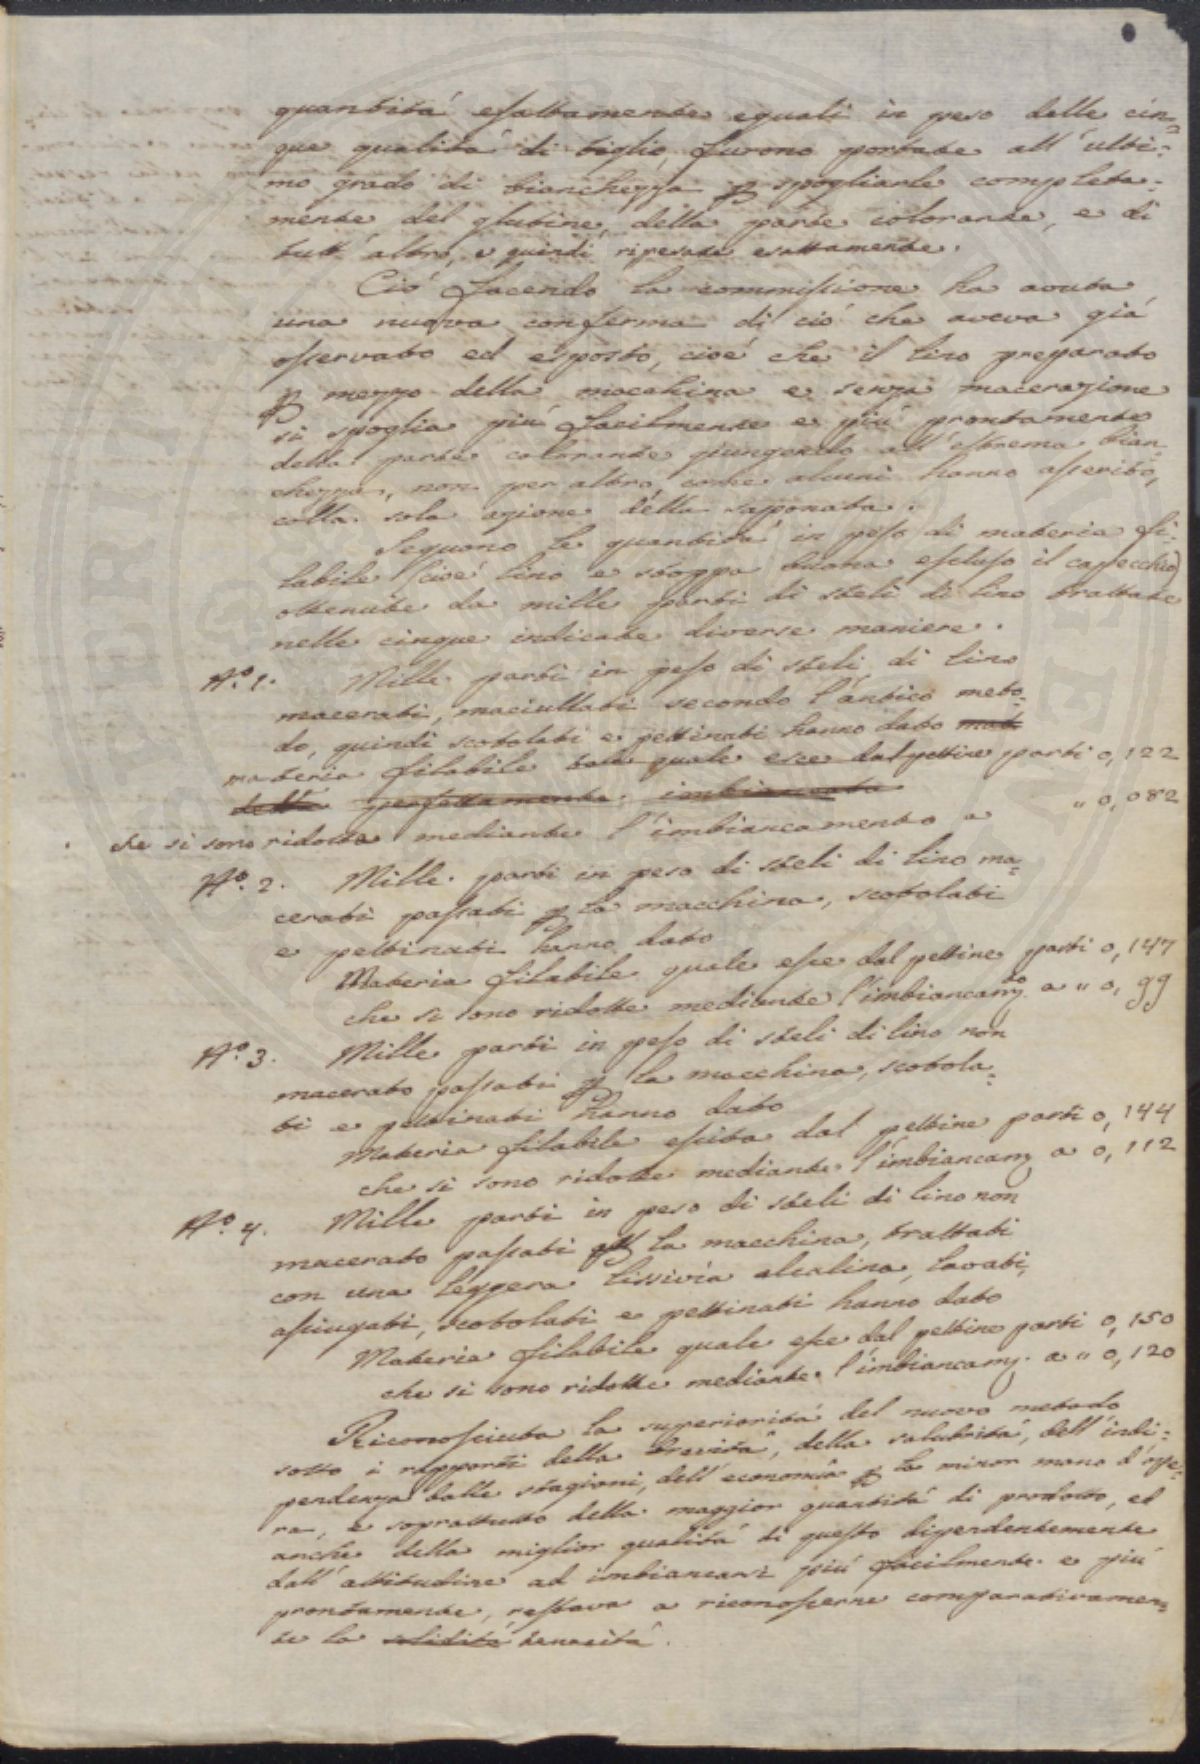 quantità esattamente eguali in peso delle cin=
que qualità di tiglio, furono portate all'ulti=
mo grado di bianchezza p spogliarle completa=
mente del glutine, della parte colorante, e di
tutt'altro, e quindi ripesate esattamente.
Ciò facendo la commissione ha avuta
una nuova conferma di ciò che aveva già
osservato ed esposto, cioè che il lino preparato
p mezzo della macchina e senza macerazione
si spoglia più facilmente e più prontamente
della parte colorante giungendo all'estrema bian
chezza, non per altro, come alcuni hanno asserito,
colla sola azione della saponata.
Seguono le quantità in peso di materia fi=
labile (cioè lino e stoppa buona escluso il capecchio)
ottenute da mille parti di steli di lino trattate
nelle cinque indicate diverse maniere.
N.º 1. Mille parti in peso di steli di lino
macerati, maciullati secondo l'antico meto=
do, quindi scotolati e pettinati hanno dato mat
materia filabile tale quale esce dal pettine parti 0,122
della perfettamente imbiancata
che si sono ridotte mediante l'imbiancamento a " 0,082
N.º 2. Mille parti in peso di steli di lino ma=
cerati passati p la macchina, scotolati
e pettinati hanno dato
Materia filabile quale esce dal pettine parti 0,147
che si sono ridotte mediante l'imbiancam.to a " 0,99
N.º 3. Mille parti in peso di steli di lino non
macerato passati p la macchina, scotola=
ti e pettinati hanno dato
Materia filabile escita dal pettine parti 0,144
che si sono ridotte mediante l'imbiancam. a 0,112
N.º 4. Mille parti in peso di steli di lino non
macerato passati p la macchina, trattati
con una leggera lissivia alcalina, lavati,
asciugati, scotolati e pettinati hanno dato
Materia filabile quale esce dal pettine parti 0,150
che si sono ridotte mediante l'imbiancam. a " 0,120
Riconosciuta la superiorità del nuovo metodo
sotto i rapporti della brevità, della salubrità, dell'indi=
pendenza dalle stagioni, dell'economia p la minor mano d'ope=
ra, e soprattutto della maggior quantità di prodotto, ed
anche della miglior qualità di questo dipendentemente
dall'attitudine ad imbiancarsi più facilmente e più
prontamente, restava a riconoscerne comparativamen=
te la solidità tenacità.